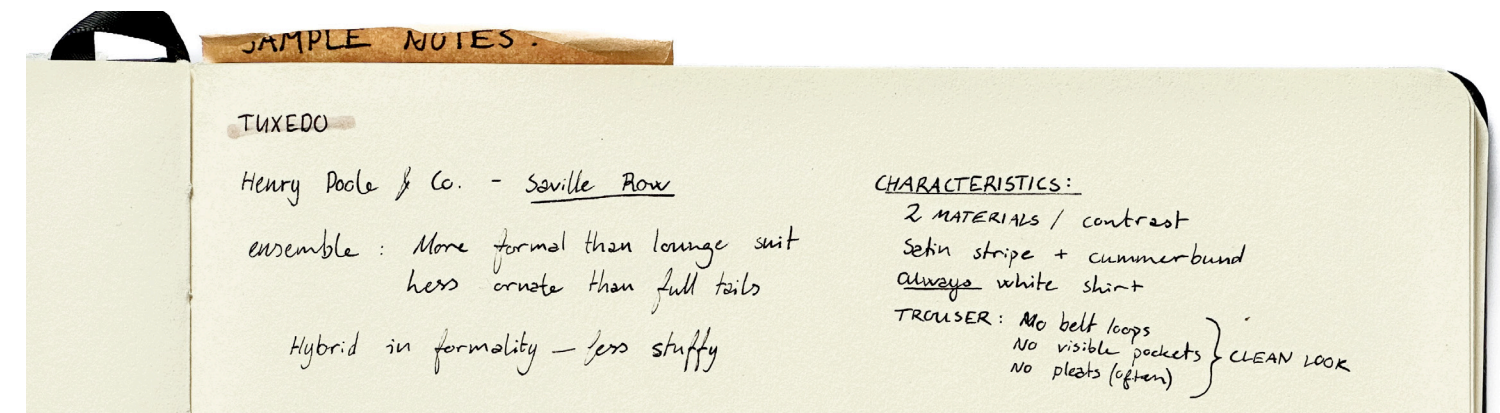 SAMPLE NOTES.
TUXEDO
Henry Poole & Co. - Saville Row
ensemble : More formal than lounge suit
Less ornate than full tails
Hybrid in formality — less stuffy
CHARACTERISTICS:
2 MATERIALS / contrast
Satin stripe + cummerbund
always white shirt
TROUSER: No belt loops
No visible pockets
No pleats (often)
CLEAN LOOK